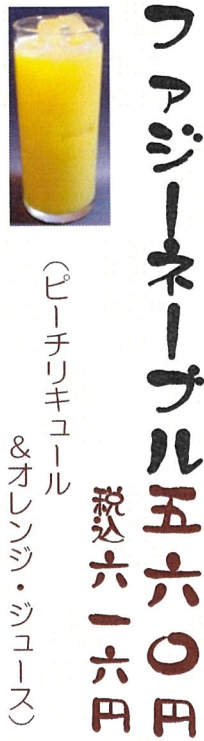 ファジーネーブル五六〇円
税込六一六円
（ピーチリキュール
＆オレンジ・ジュース）